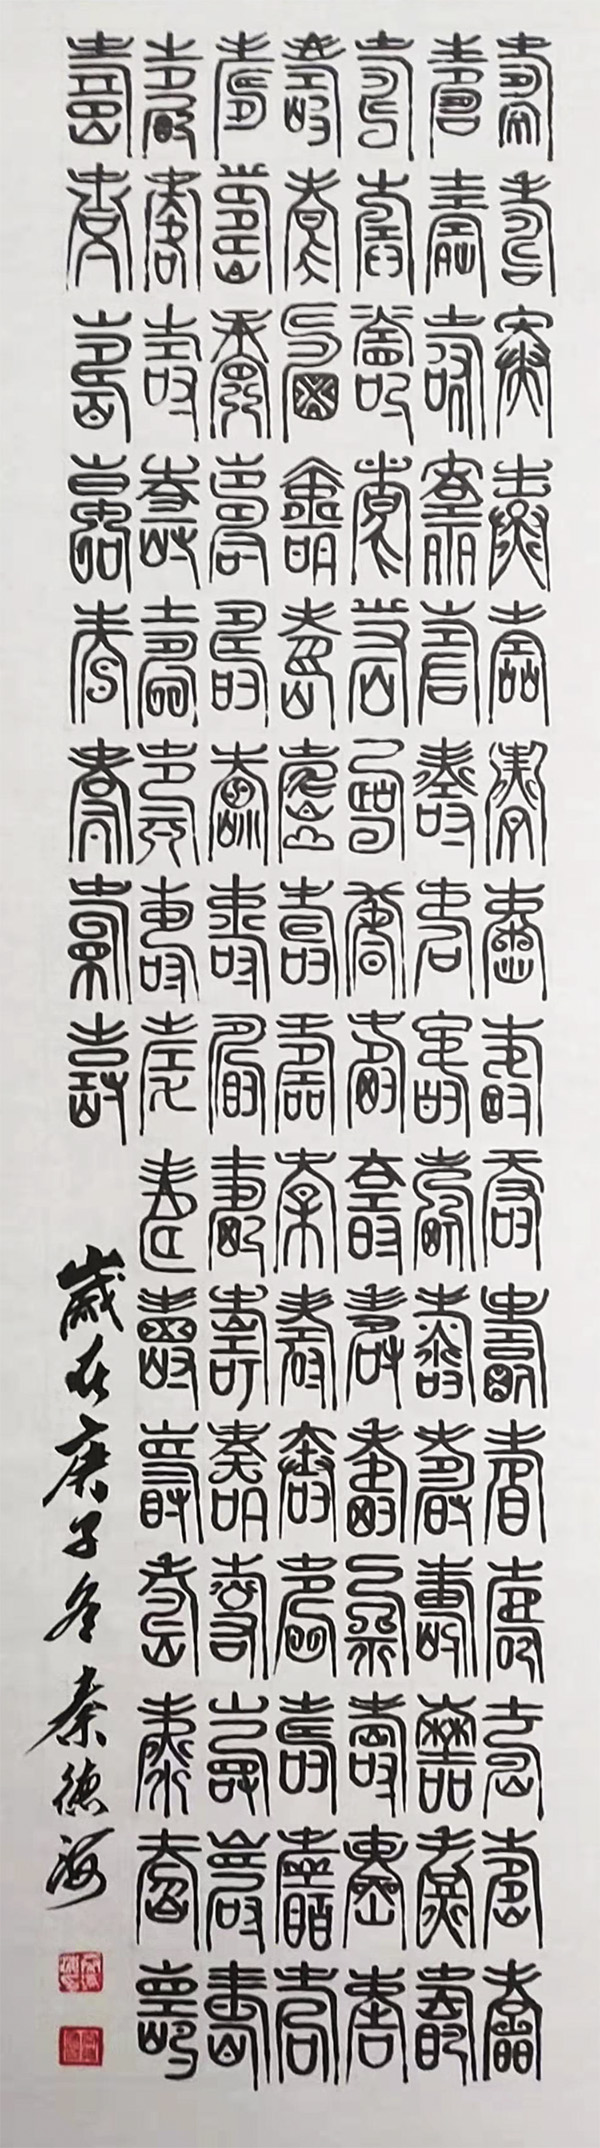 壽壽壽壽壽壽壽壽壽壽壽壽壽壽壽
壽壽壽壽壽壽壽壽壽壽壽壽壽壽壽
壽壽壽壽壽壽壽壽壽壽壽壽壽壽壽
壽壽壽壽壽壽壽壽壽壽壽壽壽壽壽
壽壽壽壽壽壽壽壽壽壽壽壽壽壽壽
壽壽壽壽壽壽壽壽壽壽壽壽壽壽壽
壽壽壽壽壽壽壽壽
歲在庚子冬秦德海